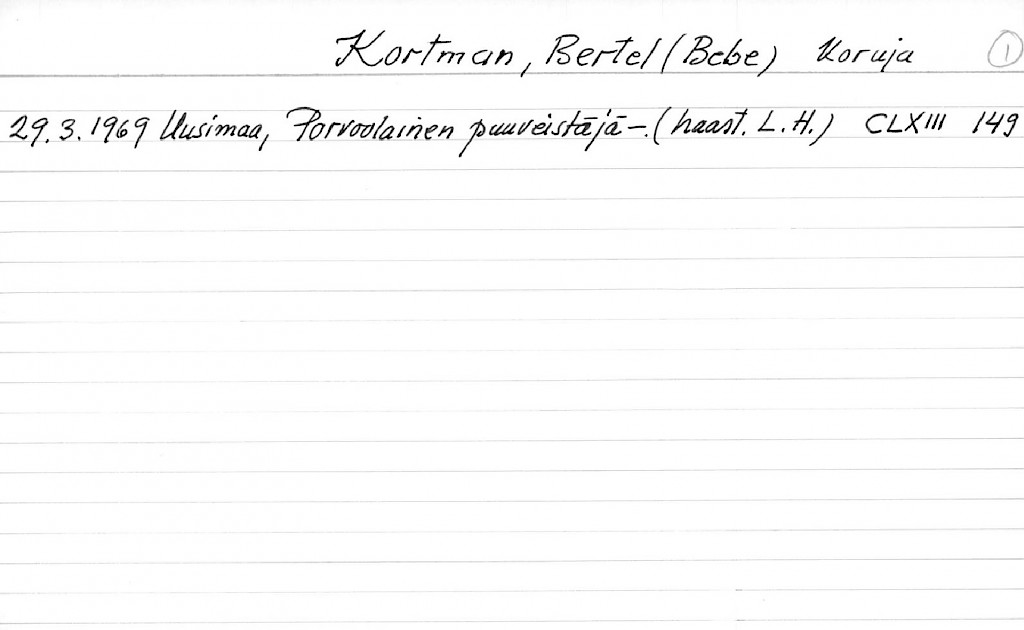 Kortman, Bertel (Bebe) Koruja 1
29.3.1969 Uusimaa, Porvoolainen puuveistäjä-. (haast. L.H.) CLXIII 149